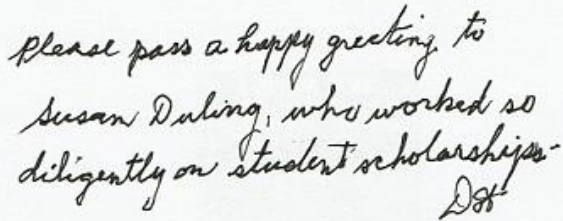 Please pass a happy greeting to
Susan Duling, who worked so
diligently on student scholarships-